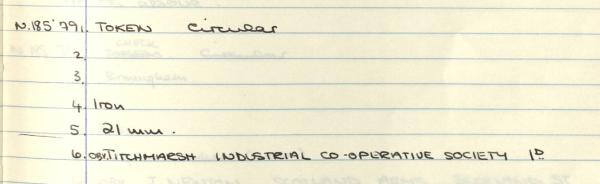 N.185'79. 1. TOKEN circular
2.
3.
4. Iron
5. 21 mm.
6. OBV. TITCHMARSH INDUSTRIAL CO-OPERATIVE SOCIETY 1D